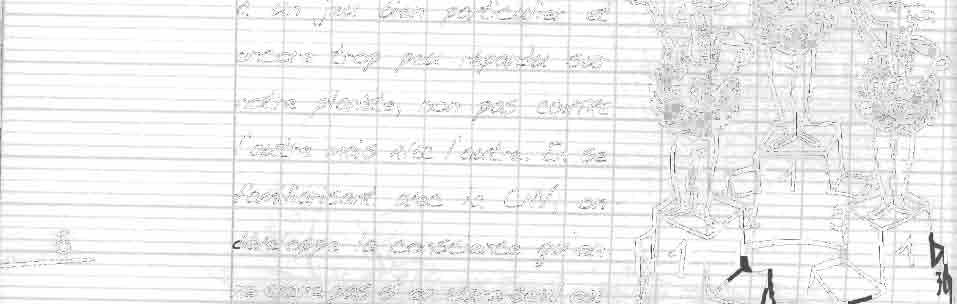 à un jeu bien particulier et
encore trop peu répandu sur
notre planète, non pas contre
l'autre mais avec l'autre. Et se
familiarisant avec la CNV, on
développe la conscience qu'on
ne
pas si
6
1
1
1